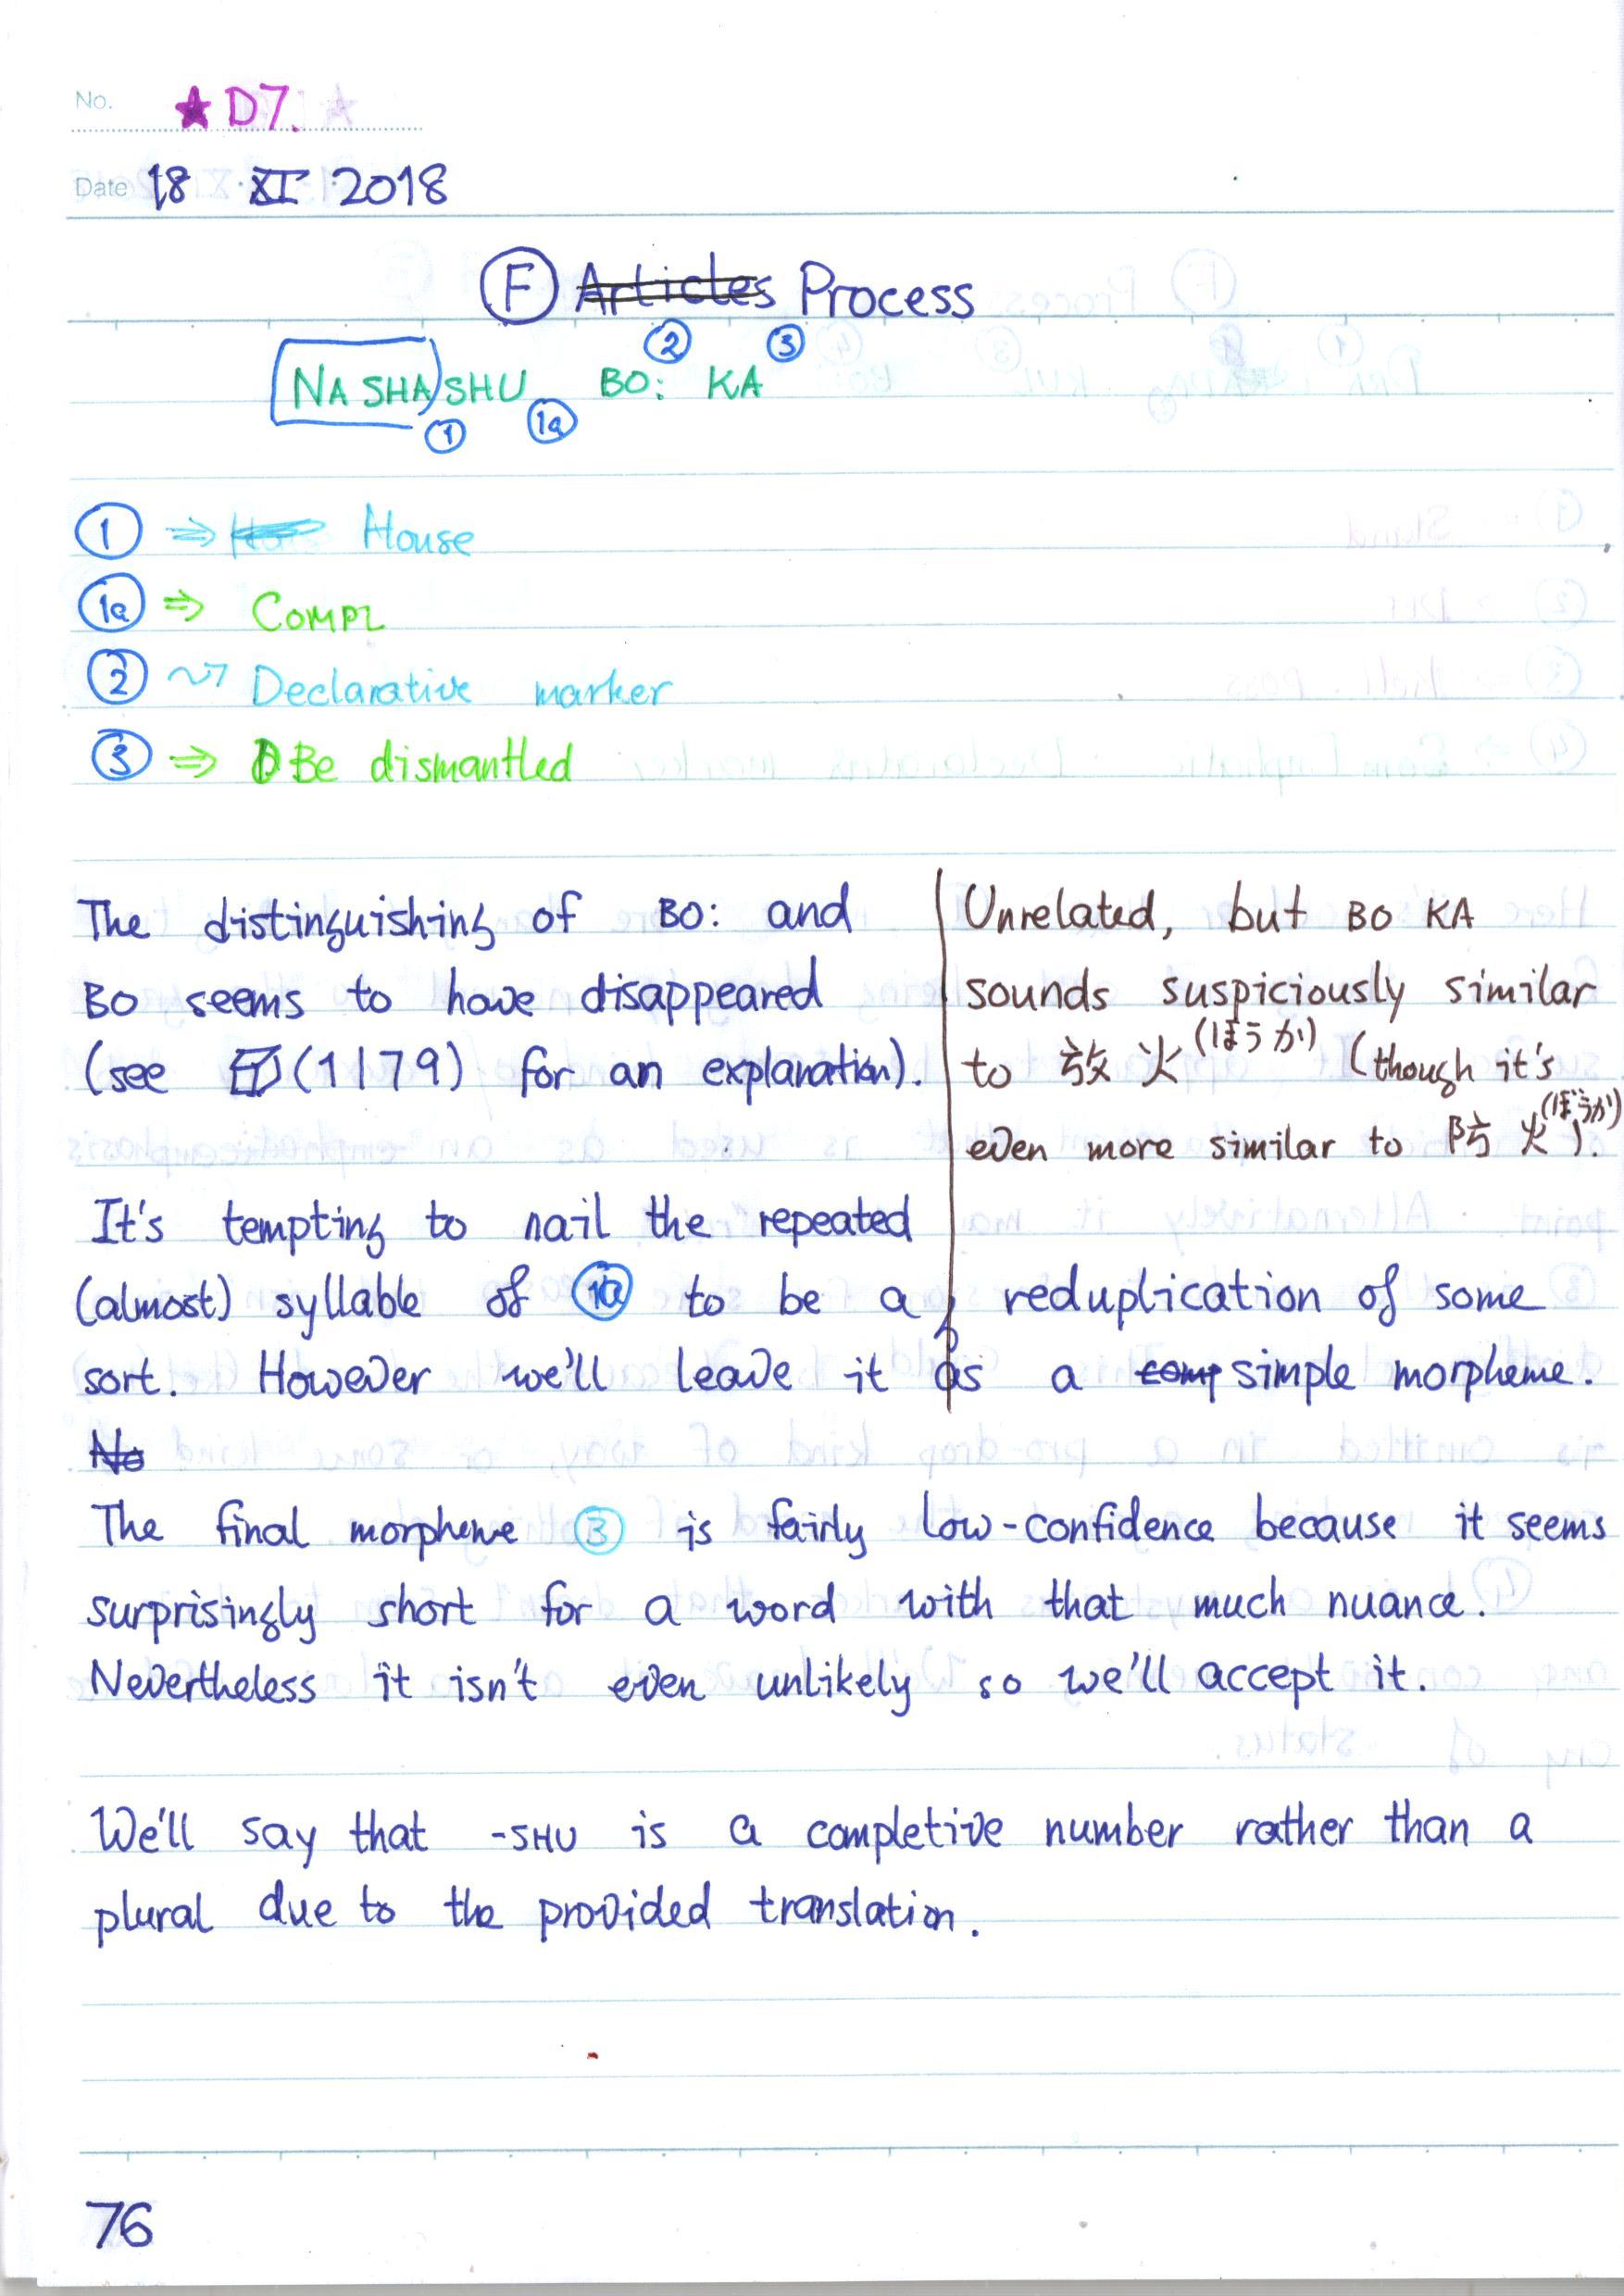 No. ★ D7.
Date 18 XI 2018
Ⓕ Articles Process
② ③
NA SHA SHU BO: KA
① 1a
① ⇒ House
1a ⇒ COMPL
② ~> Declarative marker
③ ⇒ Be dismantled
The distinguishing of BO: and
BO seems to have disappeared
(see (1179) for an explanation).
Unrelated, but BO KA
sounds suspiciously similar
to 放火 (ほうか) (though it's
even more similar to 防火 (ぼうか)).
It's tempting to nail the repeated
(almost) syllable of 1a to be a reduplication of some
sort. However we'll leave it as a comp simple morpheme.
No
The final morpheme ③ is fairly low-confidence because it seems
surprisingly short for a word with that much nuance.
Nevertheless it isn't even unlikely so we'll accept it.
We'll say that -SHU is a completive number rather than a
plural due to the provided translation.
76